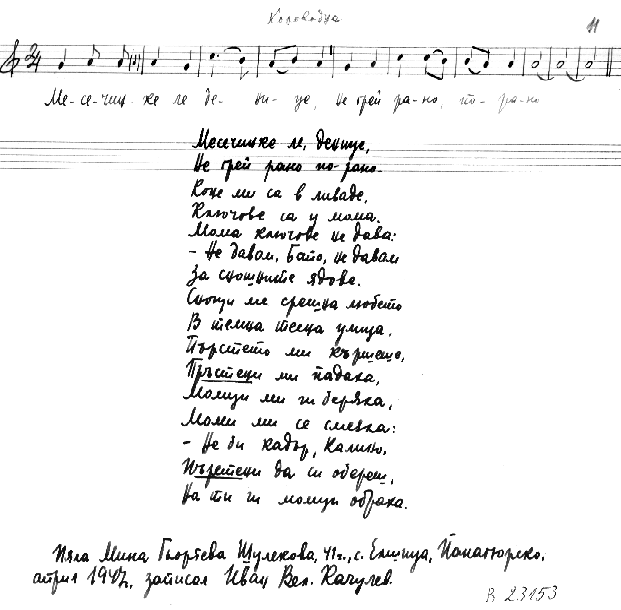 Хороводна
11
Ме-се-чин-ке ле де-ни-це, не грей ра-но, по-ра-но
Месечинке ле, денице,
Не грей рано по-рано.
Коне ми са в ливаде,
Ключове са у мома.
Мома ключове не дава:
- Не давам, бате, не давам
За снощните ядове.
Снощи ме срещна любето
В темна тесна улица,
Пърстето ми кършеше,
Пръстени ми падака,
Момци ми ги берека,
Моми ми се смеека:
- Не би кадър, Калино,
Пърстени да си обереш,
На ти ги момци обрака.
Пяла Мина Гьоргева Шулекова, 41 г., с. Елшица, Панагюрско,
април 1947, записал Иван Вел. Качулев.
В 23153